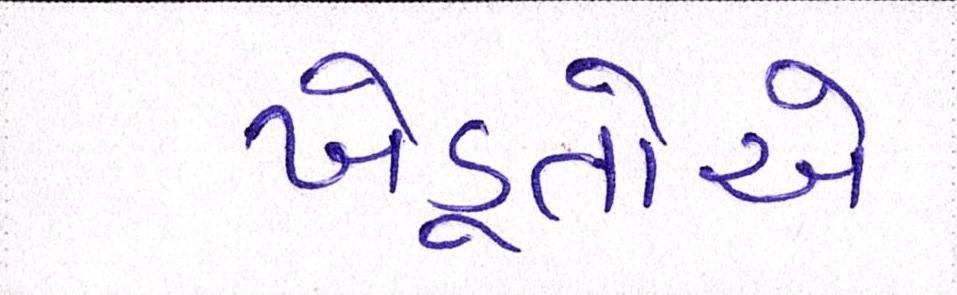 ખેડૂતોએ